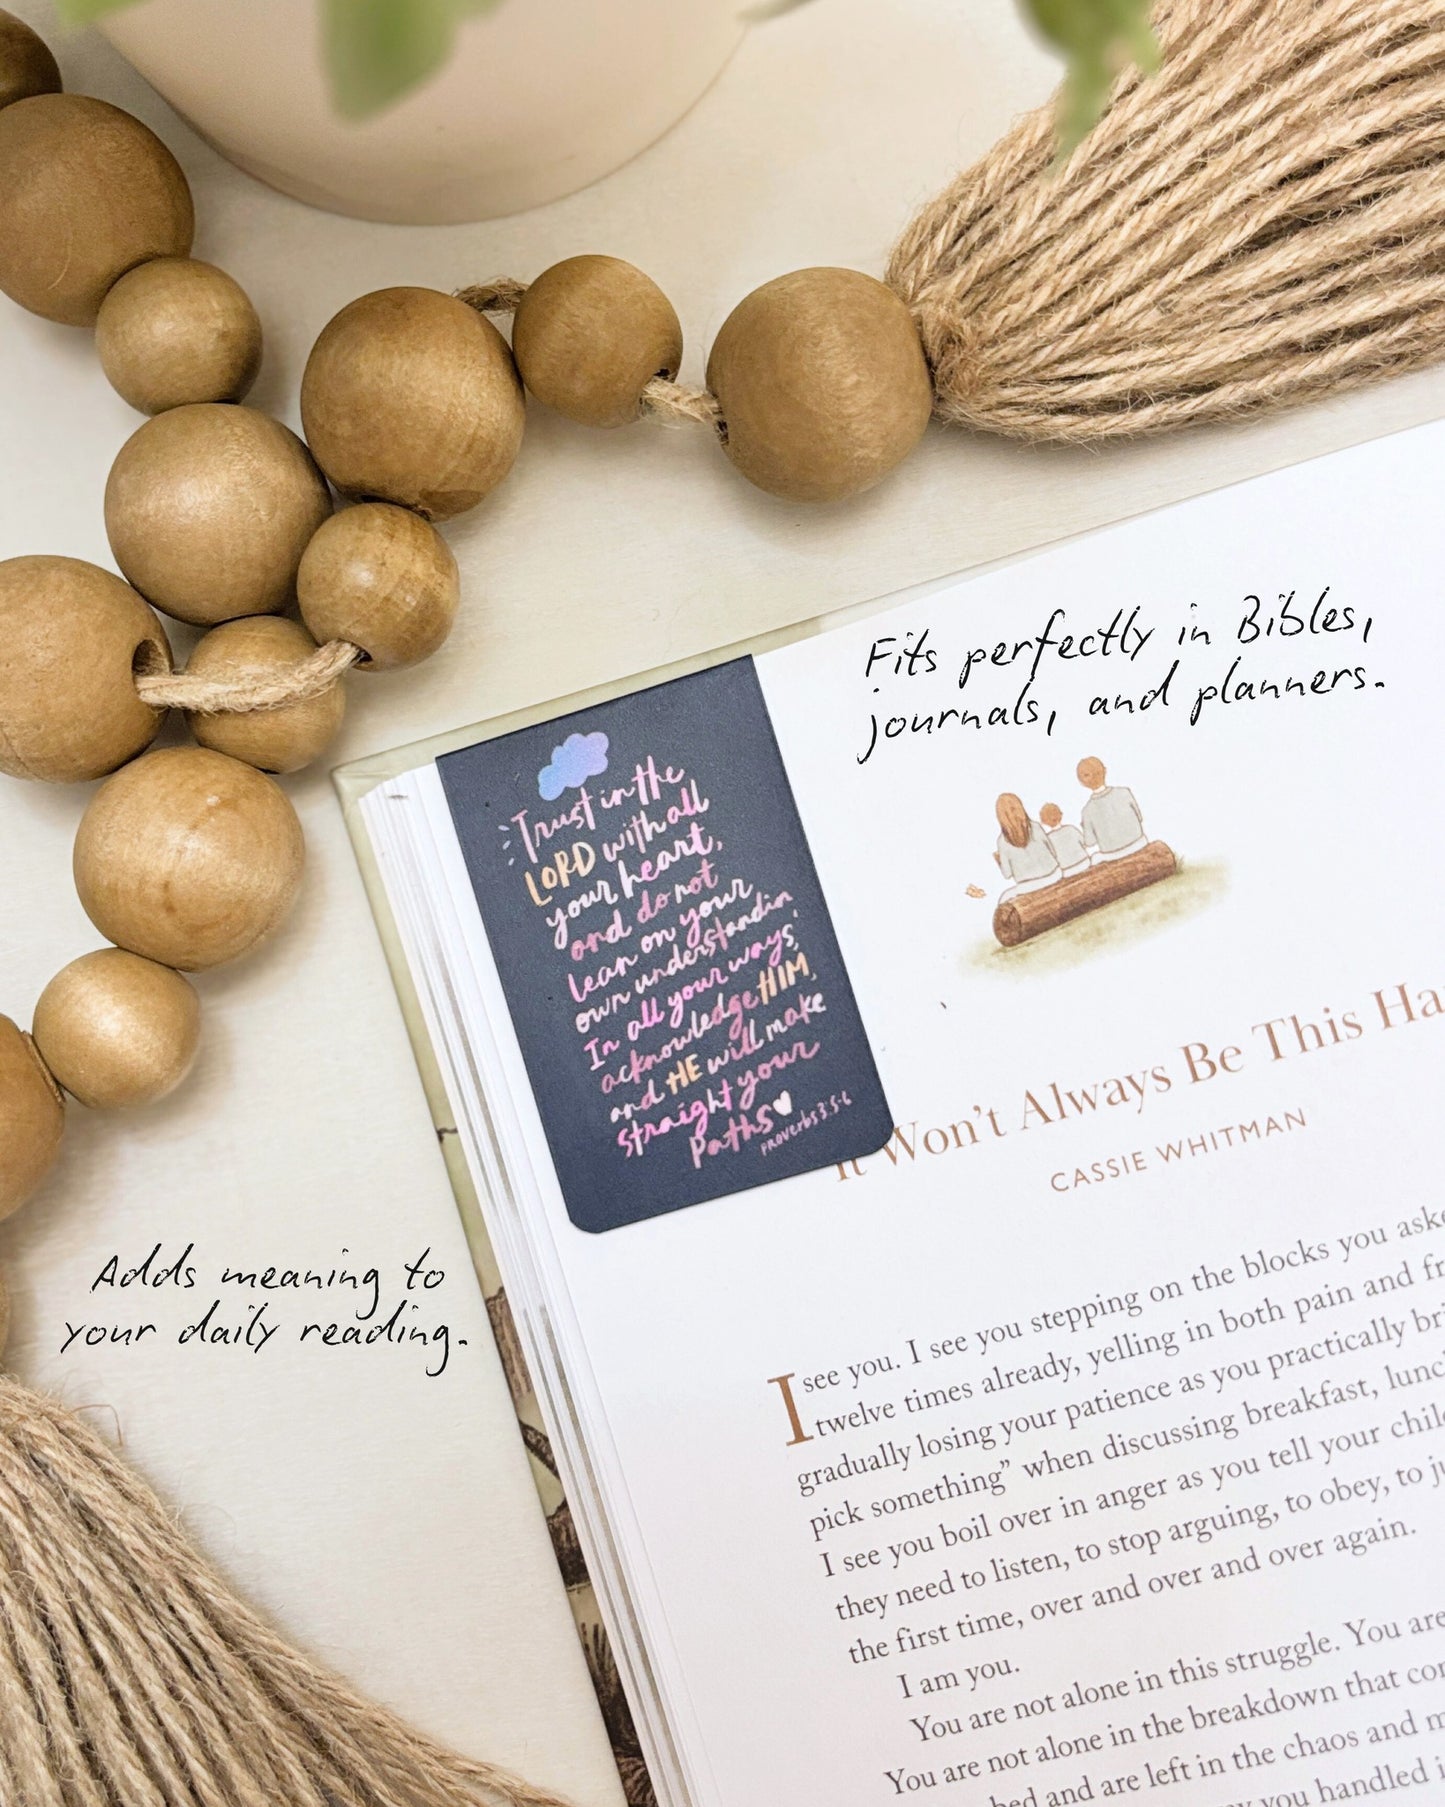 Fits perfectly in Bibles,
journals, and planners.
Trust in the
LORD with all
your heart,
and do not
lean on your
own understandin
In all your ways,
acknowledge HIM,
and HE will make
straight your
paths
Proverbs 3:5-6
It Won't Always Be This Ha
CASSIE WHITMAN
Adds meaning to
your daily reading.
I see you. I see you stepping on the blocks you aske
twelve times already, yelling in both pain and fr
gradually losing your patience as you practically bri
pick something” when discussing breakfast, lunc
I see you boil over in anger as you tell your chil
they need to listen, to stop arguing, to obey, to ju
the first time, over and over and over again.
I am you.
You are not alone in this struggle. You are
You are not alone in the breakdown that co
bed and are left in the chaos and m
you handled i